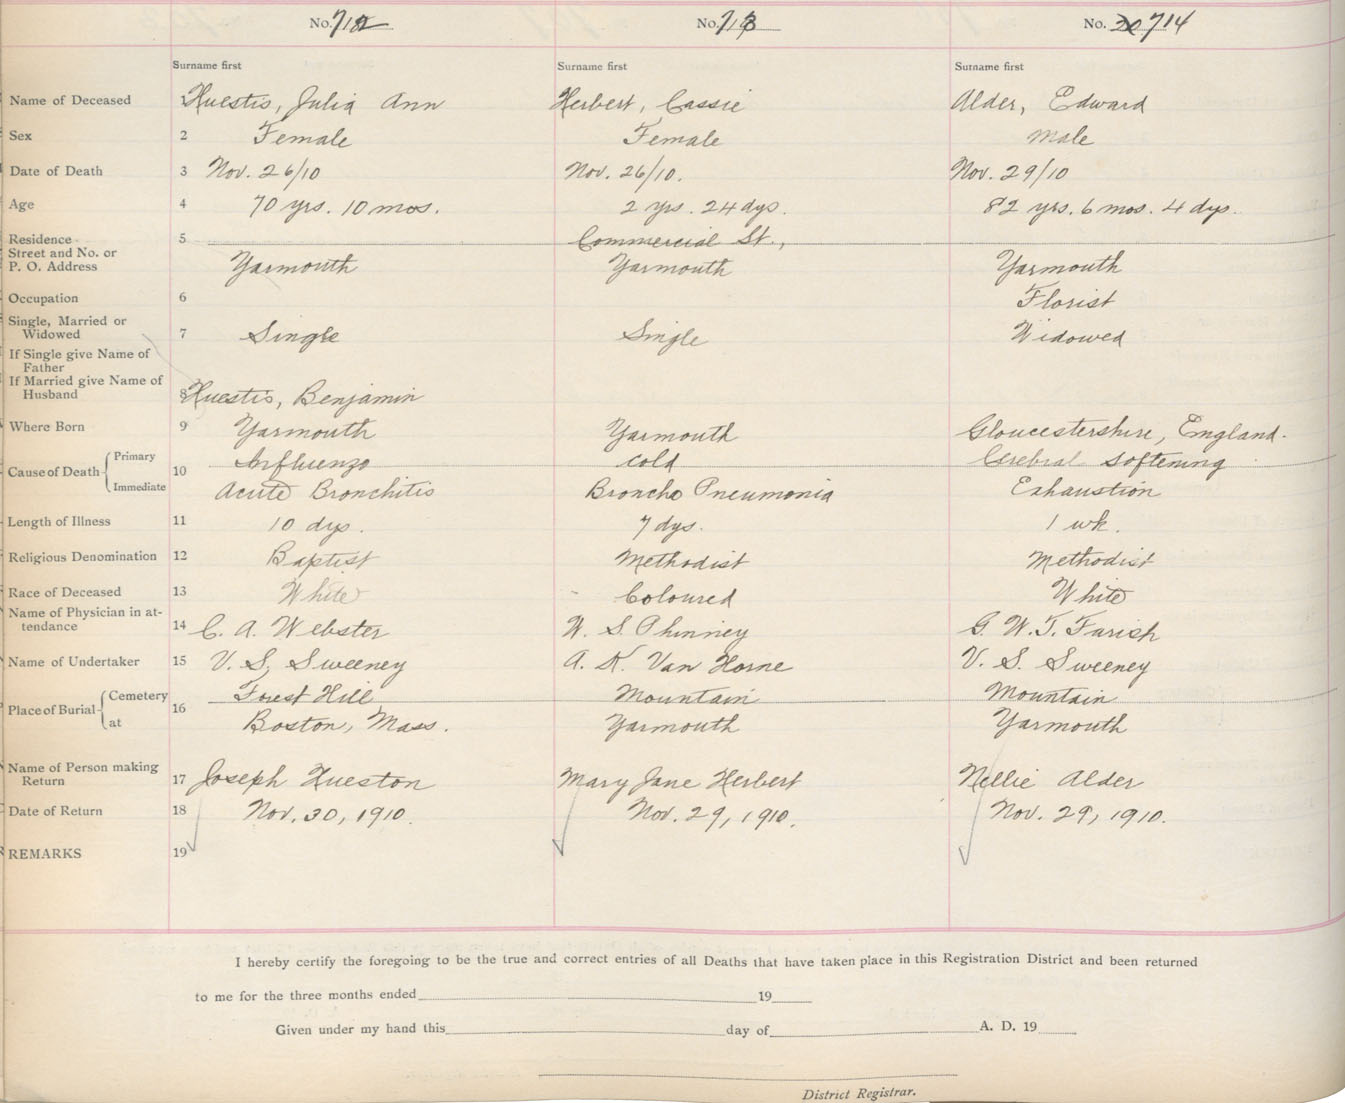 No. 712 No. 713 No. 714
Surname first Surname first Surname first
Name of Deceased 1 Huestis, Julia Ann Herbert, Cassie Alder, Edward
Sex 2 Female Female Male
Date of Death 3 Nov. 26/10 Nov. 26/10. Nov. 29/10
Age 4 70 yrs. 10 mos. 2 yrs. 24 dys. 82 yrs. 6 mos. 4 dys.
Residence 5 Commercial St.,
Street and No. or
P. O. Address Yarmouth Yarmouth Yarmouth
Occupation 6 Florist
Single, Married or
Widowed 7 Single Single Widowed
If Single give Name of
Father
If Married give Name of
Husband 8 Huestis, Benjamin
Where Born 9 Yarmouth Yarmouth Gloucestershire, England.
Cause of Death 10 Primary Influenza Cold Cerebral Softening
Immediate Acute Bronchitis Broncho Pneumonia Exhaustion
Length of Illness 11 10 dys. 7 dys. 1 wk.
Religious Denomination 12 Baptist Methodist Methodist
Race of Deceased 13 White Coloured White
Name of Physician in at-
tendance 14 C. A. Webster W. S. Phinney G. W. T. Farish
Name of Undertaker 15 V. S. Sweeney A. K. Van Horne V. S. Sweeney
Place of Burial 16 Cemetery Forest Hill Mountain Mountain
at Boston, Mass. Yarmouth Yarmouth
Name of Person making
Return 17 Joseph Hueston Mary Jane Herbert Nellie Alder
Date of Return 18 Nov. 30, 1910. Nov. 29, 1910. Nov. 29, 1910.
REMARKS 19
I hereby certify the foregoing to be the true and correct entries of all Deaths that have taken place in this Registration District and been returned
to me for the three months ended 19
Given under my hand this day of A. D. 19
District Registrar.